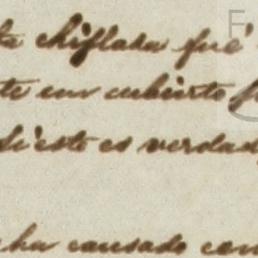 ta chiflada fué
te un cubierto
si este es verdad
ha causado con